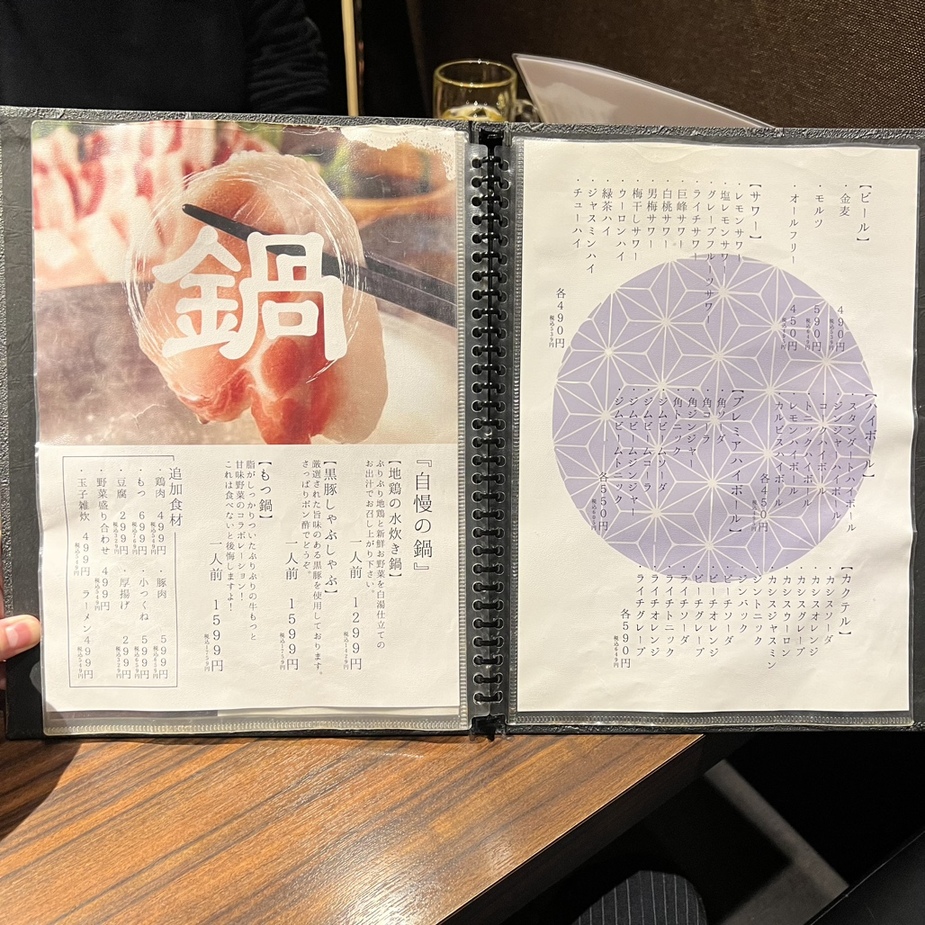 鍋
『自慢の鍋』
【地鶏の水炊き鍋】
ぷりぷり地鶏と新鮮お野菜を白湯仕立ての
お出汁でお召し上がり下さい。
一人前 1299円
【黒豚しゃぶしゃぶ】
厳選された旨味のある黒豚を使用しております。
さっぱりポン酢でどうぞ。
一人前 1599円
【もつ鍋】
脂がしっかりついたぷりぷりの牛もつと
甘味野菜のコラボレーション!
これは食べないと後悔しますよ!
一人前 1599円
追加食材
・鶏肉 499円 ・豚肉 599円
・もつ 699円 ・小つくね 599円
・豆腐 299円 ・厚揚げ 299円
・野菜盛り合わせ 499円
・玉子雑炊 499円 ・ラーメン 499円
【ビール】
・金麦 490円
・モルツ 590円
・オールフリー 450円
【サワー】
・レモンサワー
・塩レモンサワー
・グレープフルーツサワー
・ライチサワー
・巨峰サワー
・白桃サワー
・男梅サワー
・梅干しサワー
・ウーロンハイ
・緑茶ハイ
・ジャスミンハイ
・チューハイ
各490円
【ハイボール】
・スタンダートハイボール
・ジンジャーハイボール
・コークハイボール
・トニックハイボール
・レモンハイボール
・カルピスハイボール
各450円
【プレミアハイボール】
・角ソーダ
・角コーラ
・角ジンジャー
・角トニック
・ジムビームソーダ
・ジムビームコーラ
・ジムビームジンジャー
・ジムビームトニック
各550円
【カクテル】
・カシスソーダ
・カシスオレンジ
・カシスグレープ
・カシスウーロン
・カシスジャスミン
・ジントニック
・ジンバック
・ピーチソーダ
・ピーチオレンジ
・ピーチグレープ
・ライチソーダ
・ライチトニック
・ライチオレンジ
・ライチグレープ
各590円